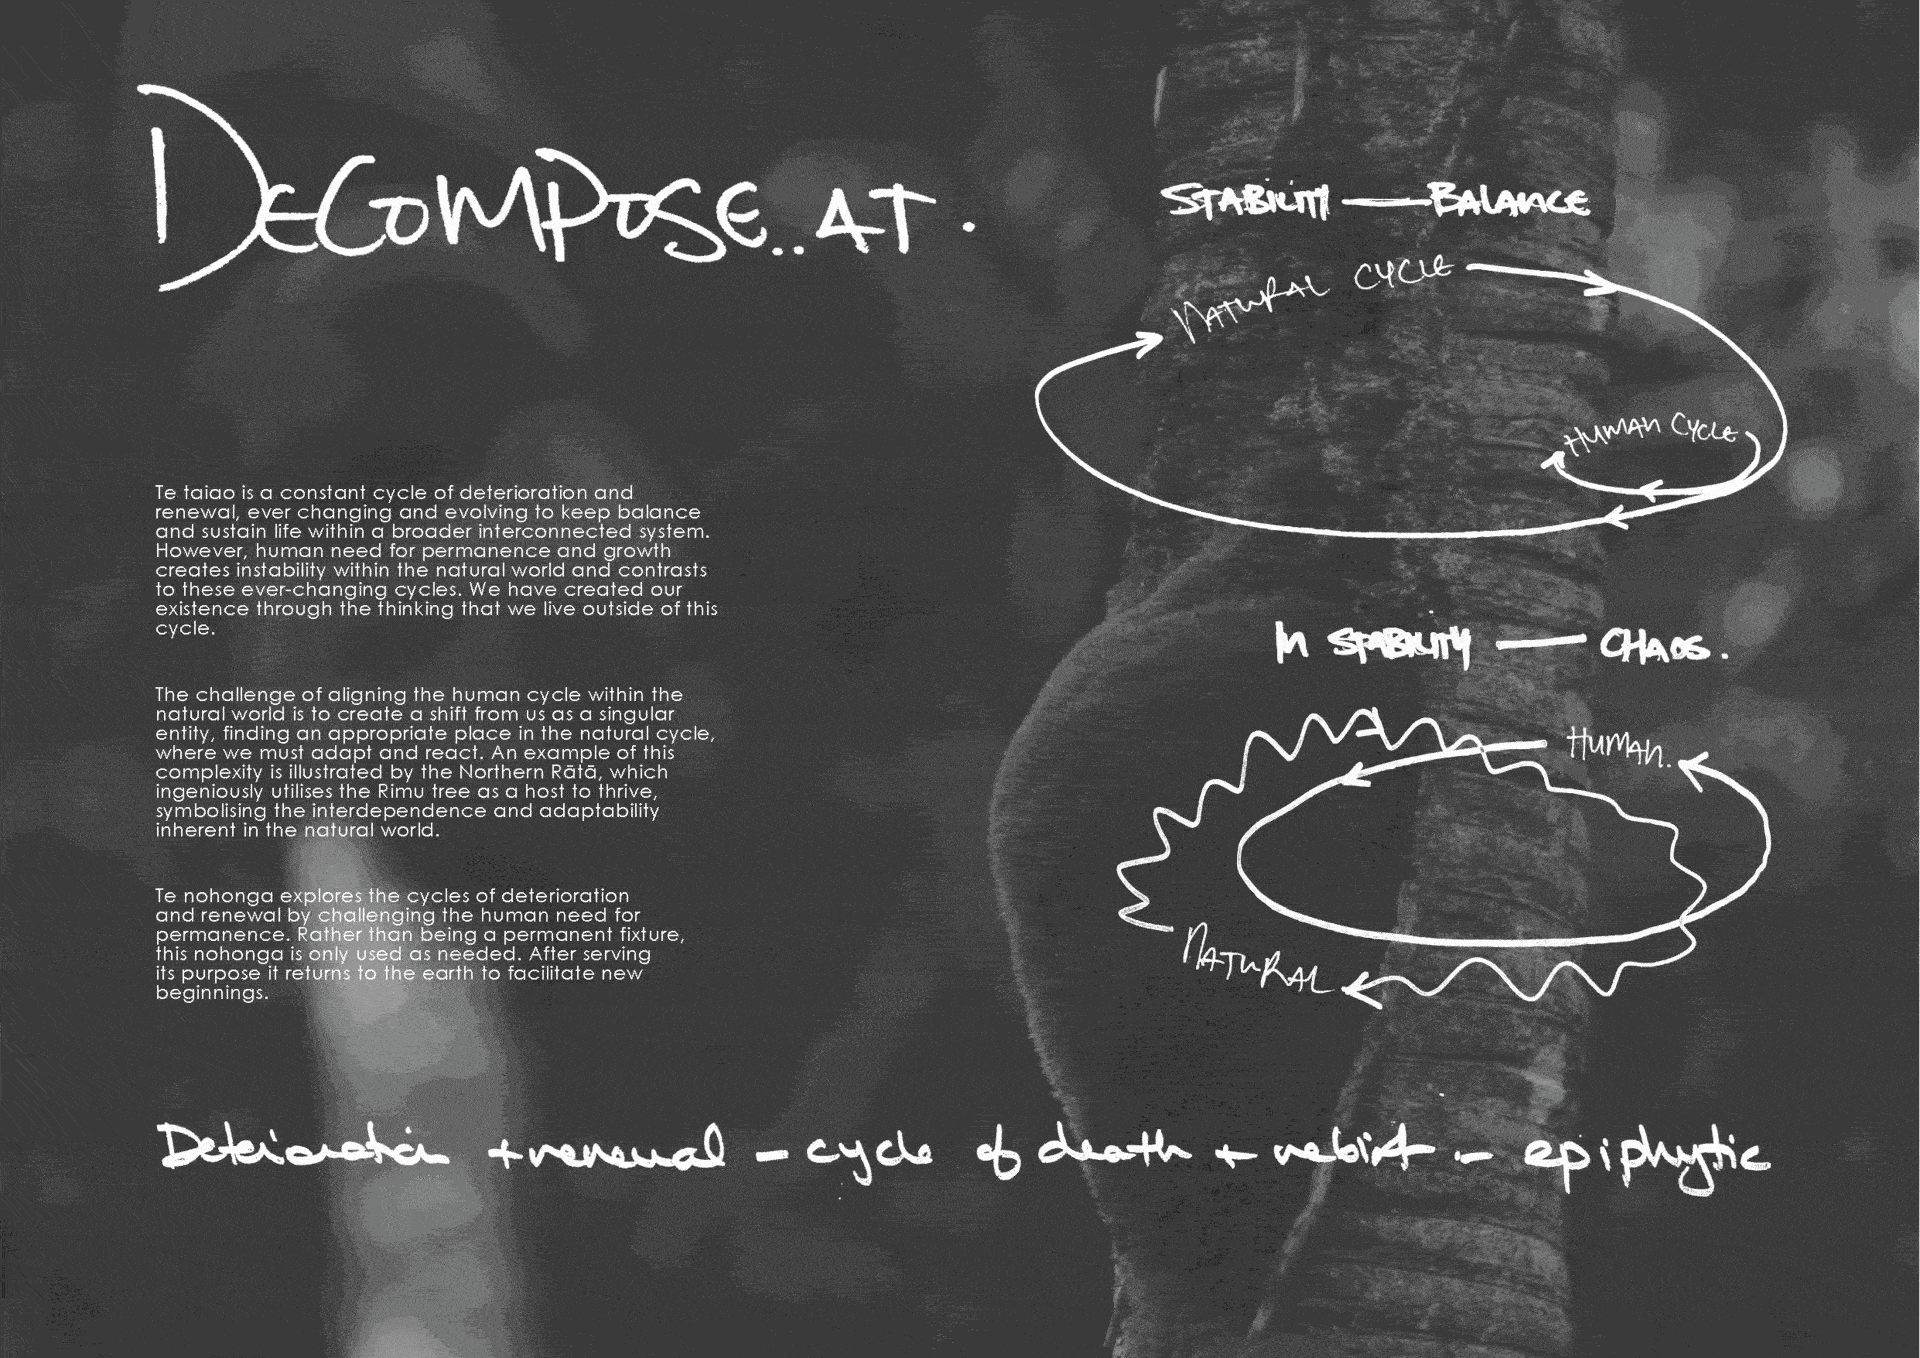 DECOMPOSE..AT.
STABILITY — BALANCE
NATURAL CYCLE
HUMAN CYCLE
Te taiao is a constant cycle of deterioration and
renewal, ever changing and evolving to keep balance
and sustain life within a broader interconnected system.
However, human need for permanence and growth
creates instability within the natural world and contrasts
to these ever-changing cycles. We have created our
existence through the thinking that we live outside of this
cycle.
IN STABILITY — CHAOS.
HUMAN.
NATURAL
The challenge of aligning the human cycle within the
natural world is to create a shift from us as a singular
entity, finding an appropriate place in the natural cycle,
where we must adapt and react. An example of this
complexity is illustrated by the Northern Rātā, which
ingeniously utilises the Rimu tree as a host to thrive,
symbolising the interdependence and adaptability
inherent in the natural world.
Te nohonga explores the cycles of deterioration
and renewal by challenging the human need for
permanence. Rather than being a permanent fixture,
this nohonga is only used as needed. After serving
its purpose it returns to the earth to facilitate new
beginnings.
Deterioration + renewal – cycle of death + rebirt – epiphytic